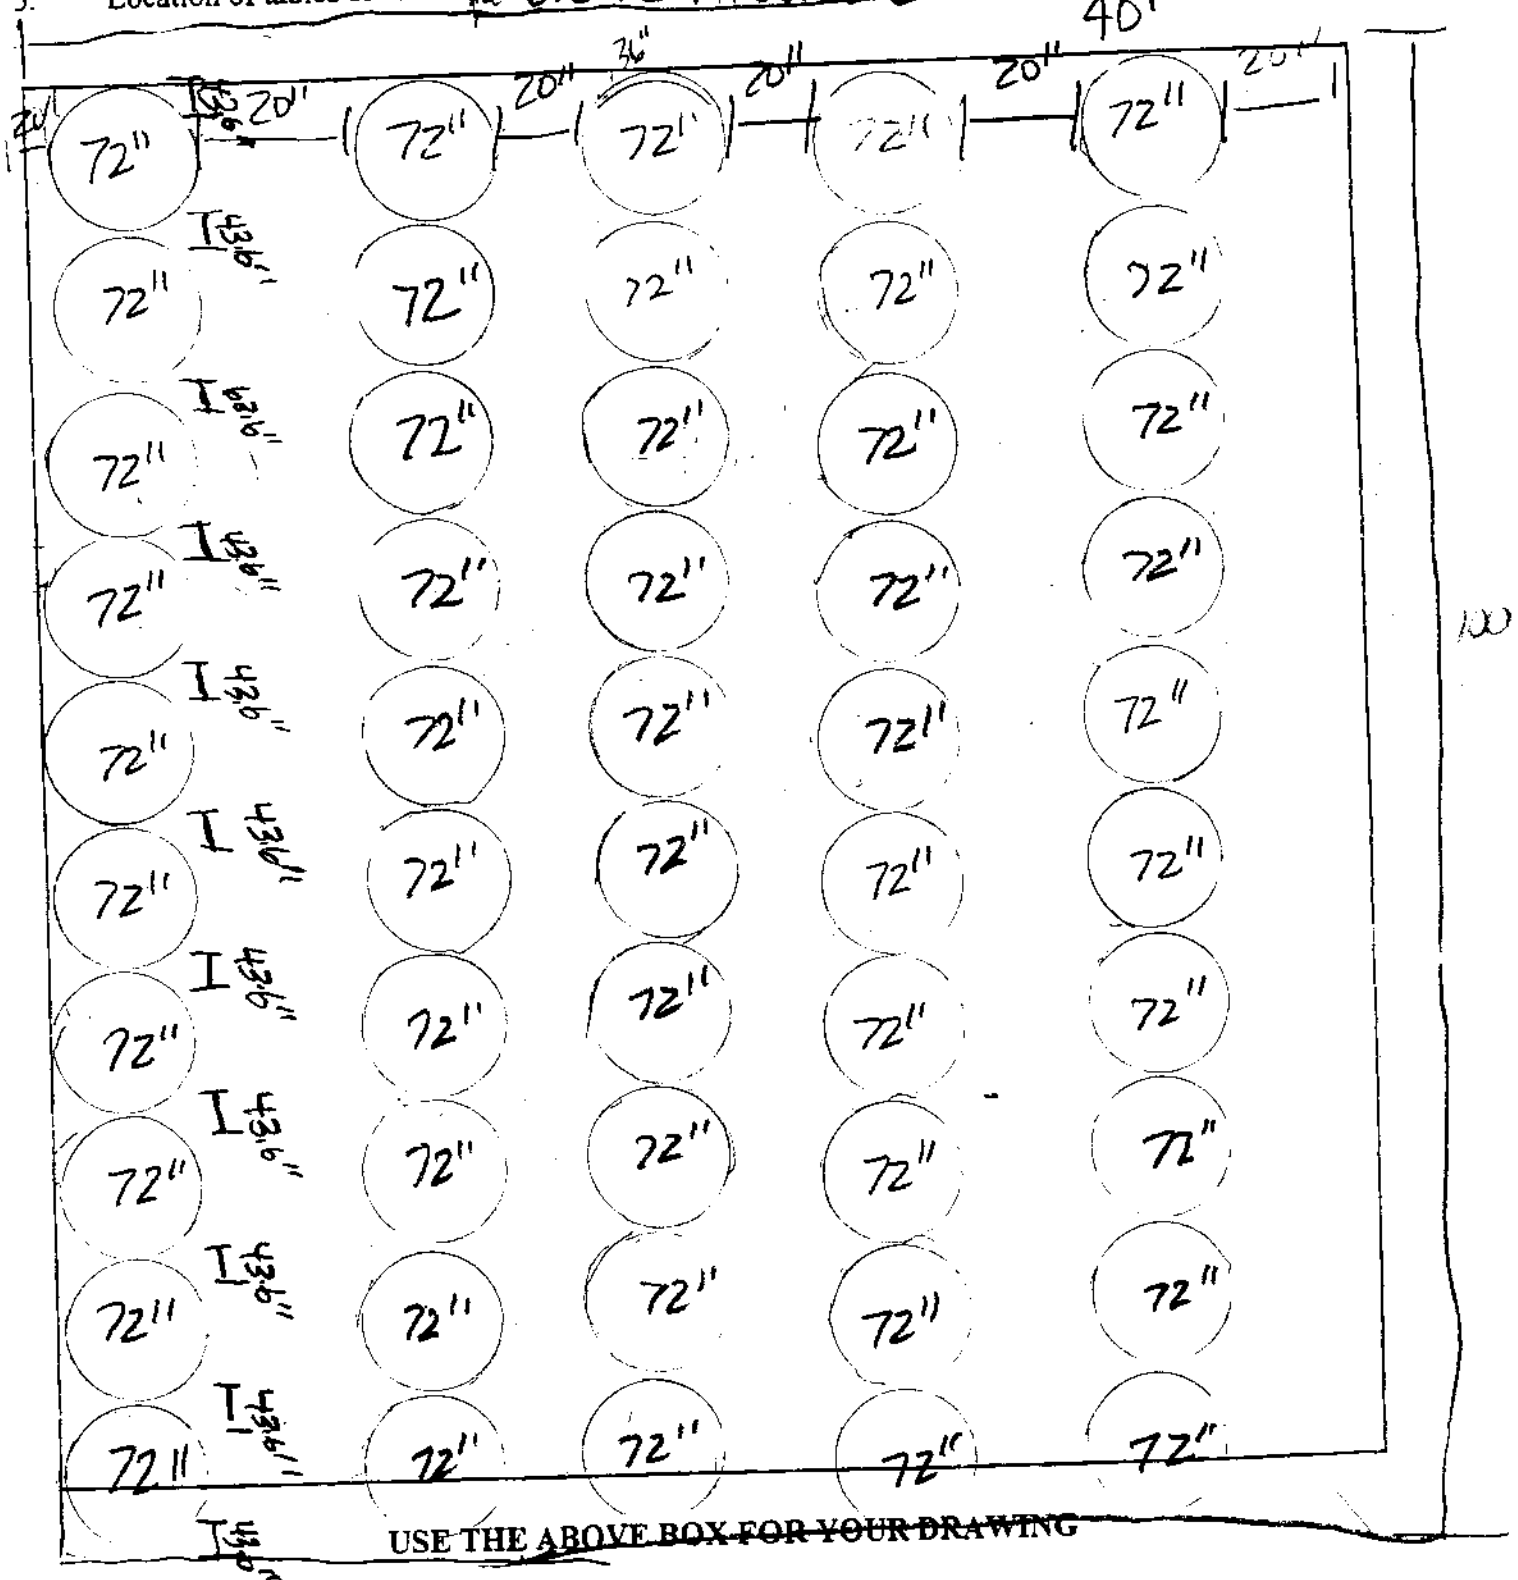 5. Location of tables
40'
36"
20" 20" 20" 20" 20" 20"
43.6"
72" 72" 72" 72" 72"
43.6"
72" 72" 72" 72" 72"
43.6"
72" 72" 72" 72" 72"
43.6"
72" 72" 72" 72" 72"
100
43.6"
72" 72" 72" 72" 72"
43.6"
72" 72" 72" 72" 72"
43.6"
72" 72" 72" 72" 72"
43.6"
72" 72" 72" 72" 72"
43.6"
72" 72" 72" 72" 72"
43.6"
72" 72" 72" 72" 72"
43.6"
USE THE ABOVE BOX FOR YOUR DRAWING